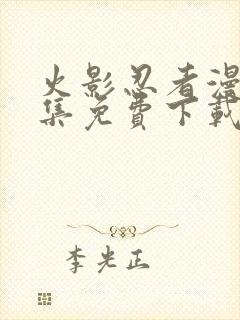 火影忍者漫
集免費下載
李光正